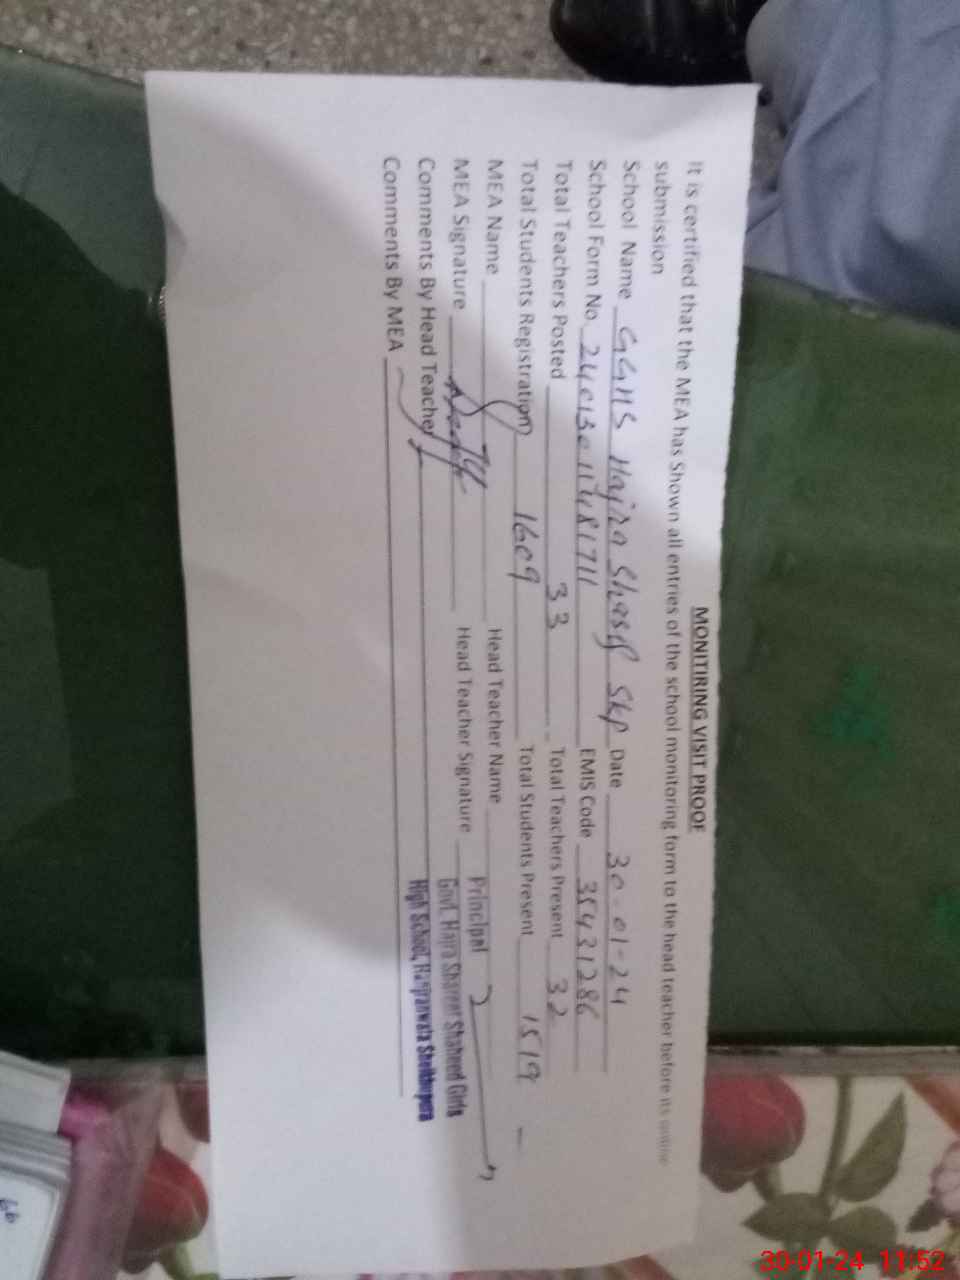 MONITIRING VISIT PROOF
It is certified that the MEA has Shown all entries of the school monitoring form to the head teacher before its online
submission
School Name GGHS Hajra Shrif Skp Date 30-01-24
School Form No. EMIS Code 35431286
Total Teachers Posted 33 Total Teachers Present 32
Total Students Registration 1609 Total Students Present 1519
MEA Name Head Teacher Name
MEA Signature Head Teacher Signature
Comments By Head Teacher
Comments By MEA
Principal
Govt. Hajra Shareef Shaheed Girls
High School, Hanjranwala Sheikhupura
66
30-01-24 11:52